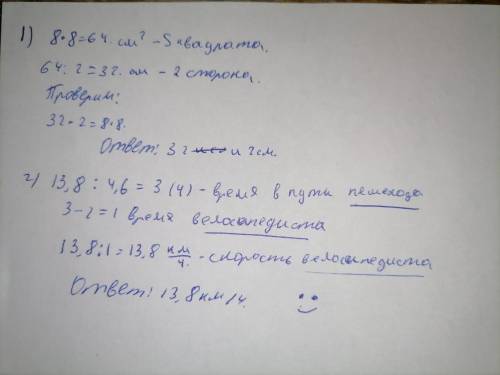 1) 8·8=64 см² - S квадрата.
64:2=32 см - 2 сторона.
Проверим:
32·2=8·8.
Ответ: 32 и 2 см.
2) 13,8 : 4,6 = 3 (ч) - время в пути пешехода
3-2=1 время велосипедиста
13,8:1=13,8 км/ч. - скорость велосипедиста
Ответ: 13,8 км/ч.